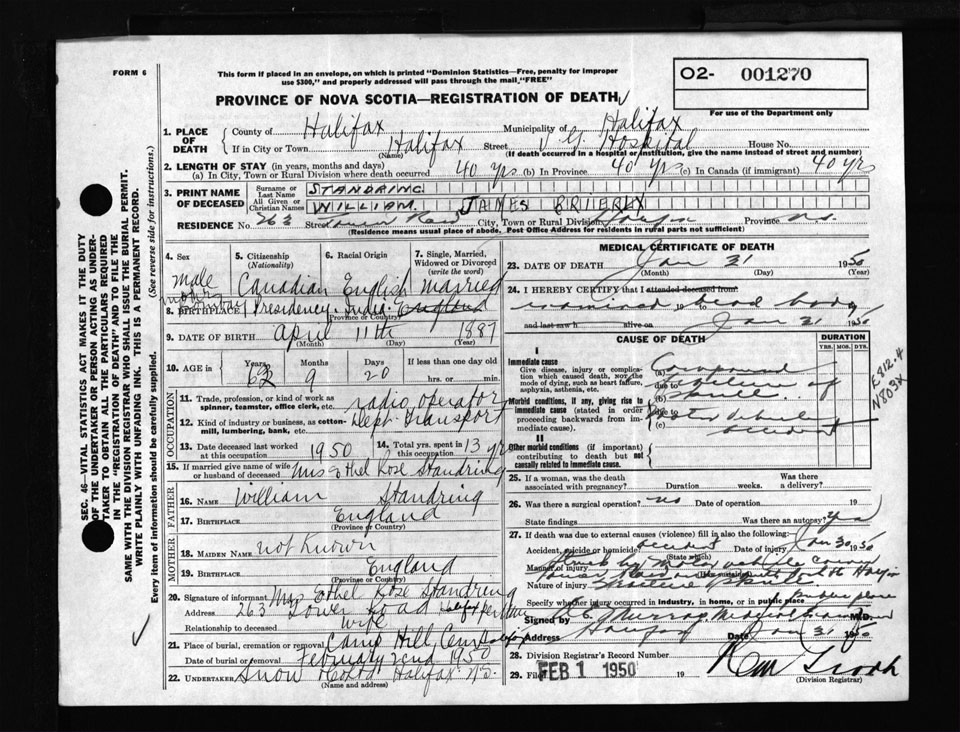 FORM 6
This form if placed in an envelope, on which is printed "Dominion Statistics—Free, penalty for improper
use $300," and properly addressed will pass through the mail, "FREE"
O2- 001270
PROVINCE OF NOVA SCOTIA—REGISTRATION OF DEATH
For use of the Department only
1. PLACE OF DEATH
County of Halifax Municipality of Halifax
If in City or Town Halifax Street V G Hospital House No.
(Name) (If death occurred in a hospital or institution, give the name instead of street and number)
2. LENGTH OF STAY (in years, months and days)
(a) In City, Town or Rural Division where death occurred 40 yrs (b) In Province 40 yrs (c) In Canada (if immigrant) 40 yrs
3. PRINT NAME OF DECEASED
Surname or Last Name STANDRING
All Given or Christian Names WILLIAM JAMES
RESIDENCE No. 263 Street City, Town or Rural Division Halifax Province N.S.
(Residence means usual place of abode. Post Office Address for Residents in rural parts not sufficient)
4. Sex
male
5. Citizenship
(Nationality)
Canadian
6. Racial Origin
English
7. Single, Married,
Widowed or Divorced
(write the word)
married
8. BIRTHPLACE Presidency India England
(Province or Country)
9. DATE OF BIRTH April 11th 1887
(Month) (Day) (Year)
10. AGE in
Years 62
Months 9
Days 20
If less than one day old
hrs. or min.
OCCUPATION
11. Trade, profession, or kind of work as
spinner, teamster, office clerk, etc. radio operator
12. Kind of industry or business, as cotton-
mill, lumbering, bank, etc. Dept. Transport
13. Date deceased last worked
at this occupation 1950
14. Total yrs. spent in
this occupation 13 yr
15. If married give name of wife
or husband of deceased Mrs Ethel Rose Standring
FATHER
16. Name William Standring
17. Birthplace England
(Province or Country)
MOTHER
18. Maiden Name not Known
19. Birthplace England
(Province or Country)
20. Signature of informant Mrs Ethel Rose Standring
Address 263 Tower Road Halifax
Relationship to deceased wife
21. Place of burial, cremation or removal Camp Hill Cem Halifax
Date of burial or removal February 2nd 1950
22. UNDERTAKER Snow & Co Ltd Halifax N.S.
(Name and address)
MEDICAL CERTIFICATE OF DEATH
23. DATE OF DEATH Jan 31 1950
(Month) (Day) (Year)
24. I HEREBY CERTIFY that I attended deceased from
examined 19 to dead body 19
and last saw h alive on Jan 31 1950
CAUSE OF DEATH
DURATION
YRS. MOS. DYS.
I
Immediate cause
Give disease, injury or complica-
tion which caused death, not the
mode of dying, such as heart failure,
asphyxia, asthenia, etc.
(a) Compound
due to
(b) skull
Morbid conditions, if any, giving rise to
immediate cause (stated in order
proceeding backwards from im-
mediate cause).
due to
(c) Motor vehicle
accident
II
Other morbid conditions (if important)
contributing to death but not
causally related to immediate cause.
E812.4
N803.2
25. If a woman, was the death
associated with pregnancy? Duration weeks.
Was there
a delivery?
26. Was there a surgical operation? no Date of operation 19
State findings Was there an autopsy? Yes
27. If death was due to external causes (violence) fill in also the following:
Accident, suicide or homicide? accident Date of injury Jan 30 1950
(State which)
Manner of injury struck by motor vehicle
Nature of injury
Specify whether injury occurred in industry, in home, or in public place public place
Signed by M.D.
Address Halifax Date Jan 31 1950
28. Division Registrar's Record Number
29. Filed FEB 1 1950 19
(Division Registrar)
SEC. 46—VITAL STATISTICS ACT MAKES IT THE DUTY
OF THE UNDERTAKER OR PERSON ACTING AS UNDER-
TAKER TO OBTAIN ALL THE PARTICULARS REQUIRED
IN THE "REGISTRATION OF DEATH" AND TO FILE THE
SAME WITH THE DIVISION REGISTRAR WHO SHALL ISSUE THE BURIAL PERMIT.
WRITE PLAINLY WITH UNFADING INK. THIS IS A PERMANENT RECORD.
Every item of information should be carefully supplied. (See reverse side for instructions.)